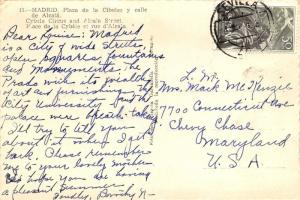 11.-MADRID. Plaza de la Cibeles y calle
de Alcalá.
Cybele Circus and Alcala Street.
Place de la Cybèle et rue d'Alcala.
SEVILLA
Dear Louise: Madrid
is a city of wide streets,
open squares, fountains
and monuments. The
Prado with its wealth
of art and furnishing the
City University and the
palace were breath-taking.
I'll try to tell you
about it when I get
back. Please remember
me to your lovely mother
and hope you are having
a pleasant summer
Fondly,
L. M.
Mrs. Mack McKenzie
7700 Connecticut Ave
Chevy Chase
Maryland
U. S. A